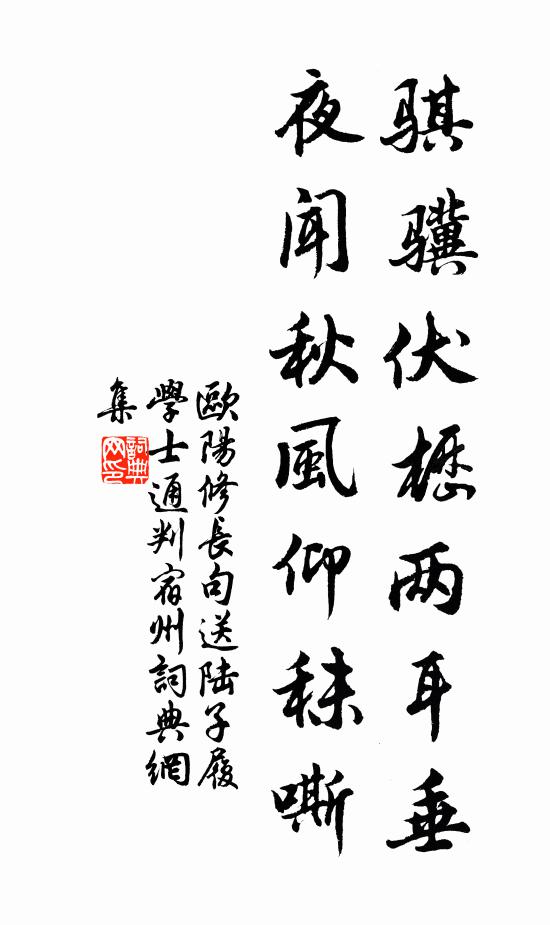 骐骥伏櫪两耳垂
夜闻秋風仰秣嘶
歐陽修長句送陆子履
學士通判宿州詞典網
集
詞典
网印